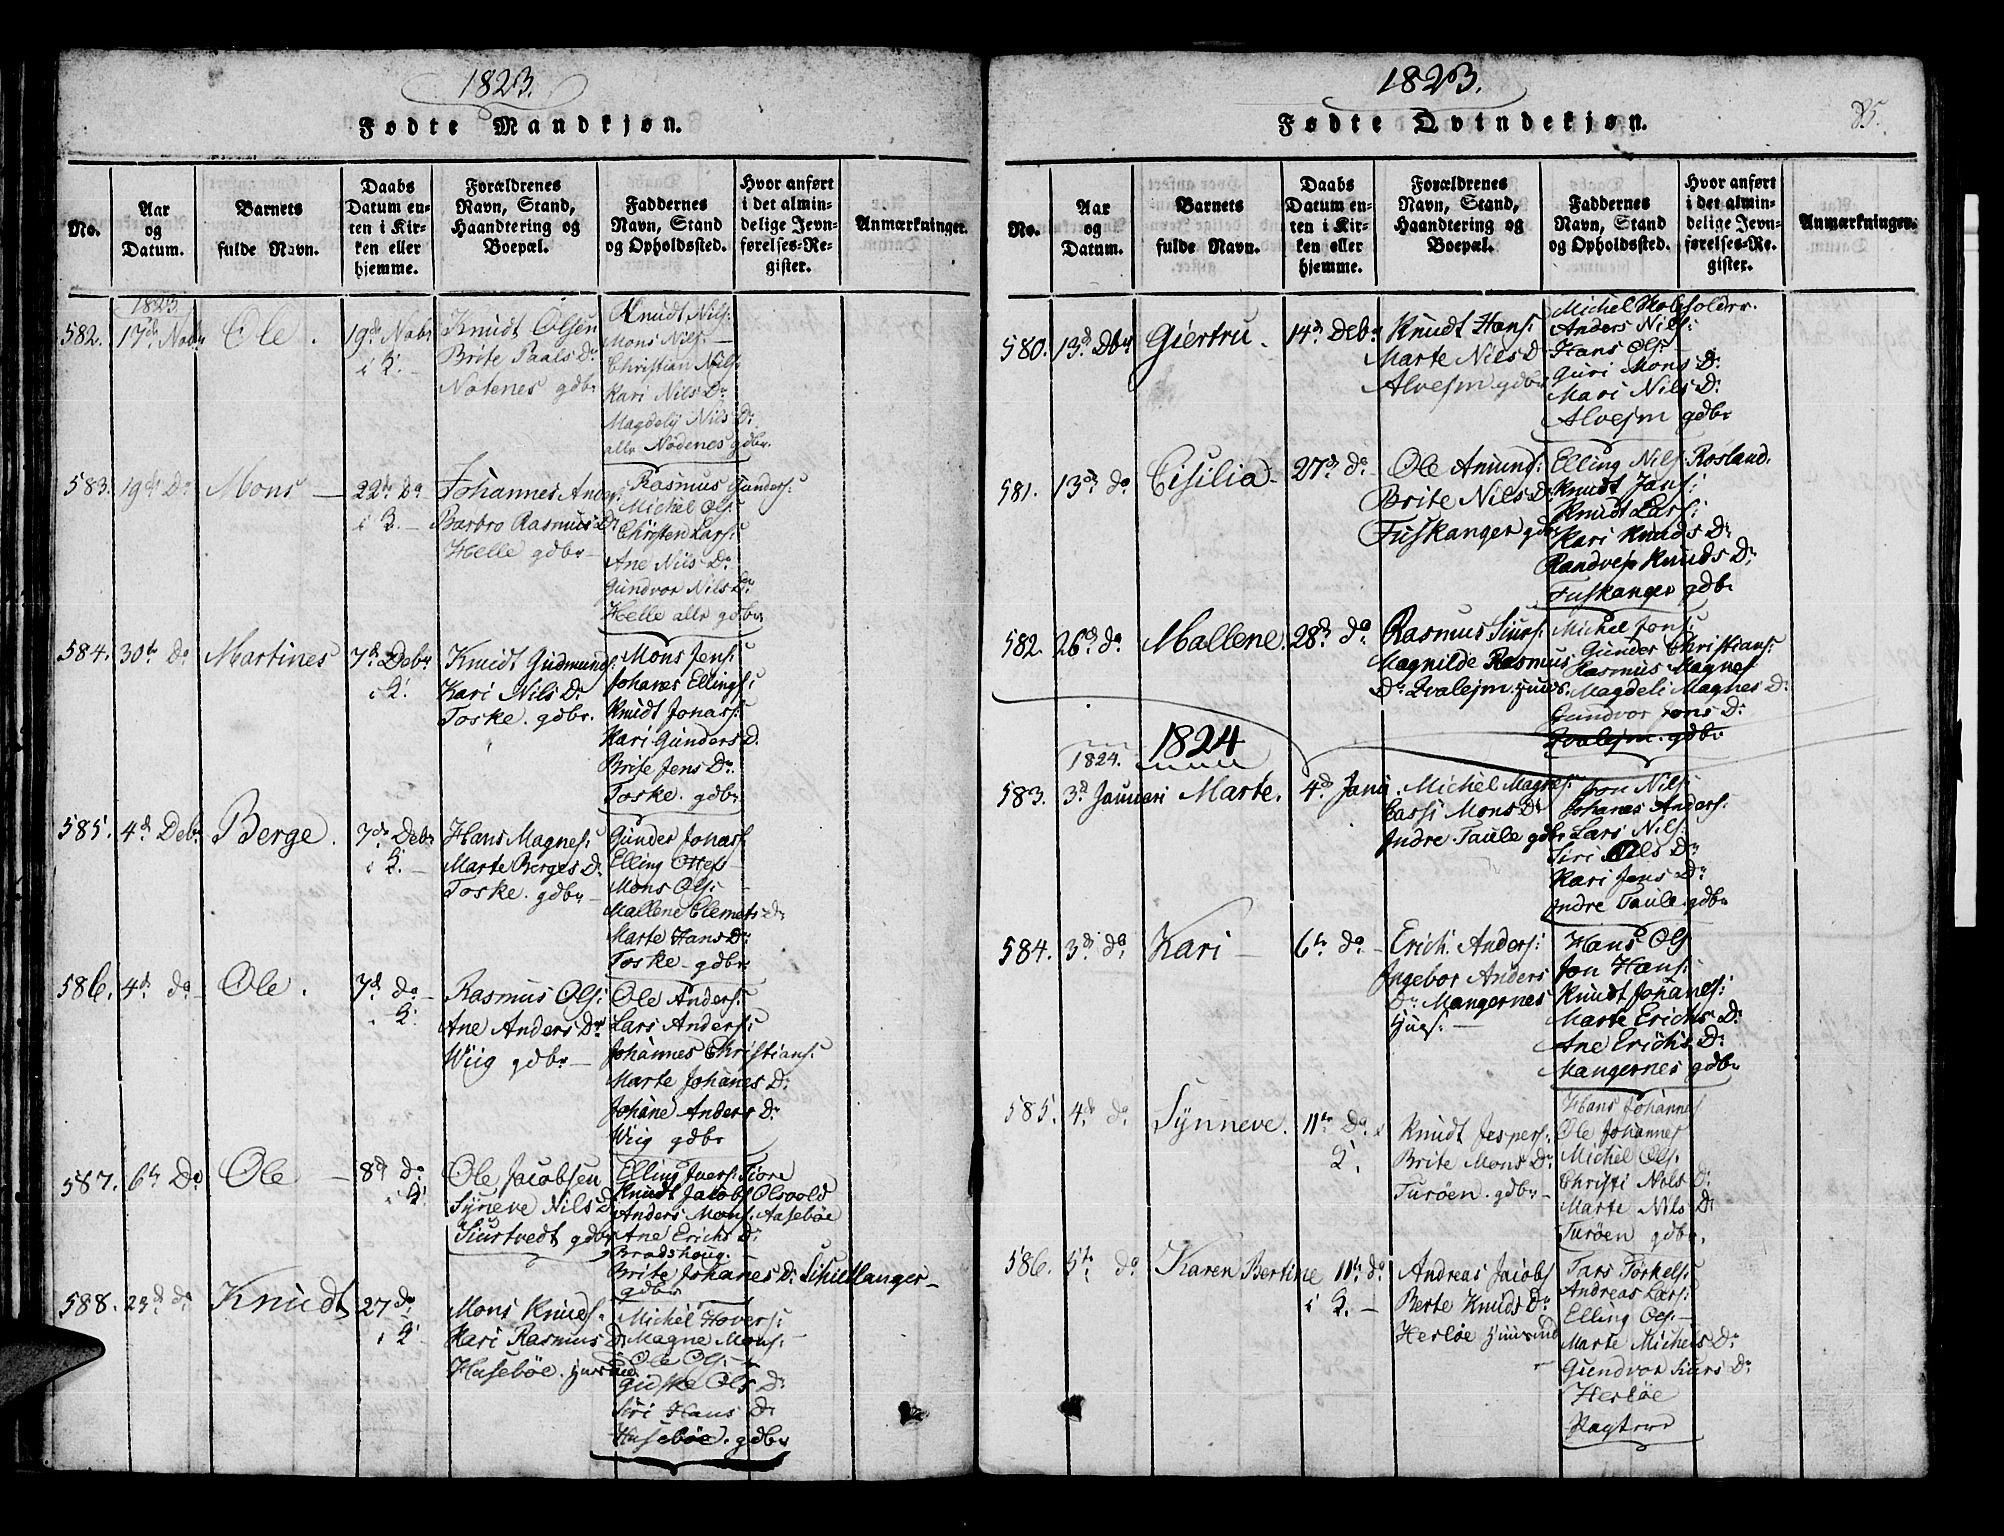 1823.
Fødte Mandkjøn.
No.
Aar og Datum.
Barnets fulde Navn.
Daabs Datum enten i Kirken eller hjemme.
Forældrenes Navn, Stand, Haandtering og Boepæl.
Faddernes Navn, Stand og Opholdssted.
Hvor anført i det almindelige Jevnførelses-Register.
Anmærkninger.
1823.
582. 17de Nobr Ole. 19de Nobr i K.
Knudt Olsen
Brite Paals Dr
Notenes gdbr
Knudt Nils:
Mons Nils:
Christian Nils:
Kari Nils Dr
Magdely Nils Dr
alle Nodenes gdbr.
583. 19de Do Mons 22de Do i K.
Johannes Anders:
Barbro Rasmus Dr
Helle gdbr
Rasmus Gunders:
Michel Ols:
Christen Lars:
Ane Nils Dr
Gundvor Nils Dr
Helle alle gdbr
584. 30te Do Martines 7de Debr i K.
Knudt Gudmunds:
Kari Nils Dr
Toske. gdbr.
Mons Jens:
Johanes Ellings:
Knudt Jonas:
Kari Gunders D.
Brite Jens Dr
Toske. gdbr
585. 4d Debr Berge. 7de Debr i K.
Hans Magnes:
Marte Berges Dr
Toske. gdbr
Gunder Jonas:
Elling Ottes
Mons Ols:
Mallene Clemets Dr
Marte Hans Dr
Toske gdbr
586. 4d do Ole. 7d do i K.
Rasmus Ols:
Ane Anders Dr
Wiig gdbr
Ole Anders:
Lars Anders:
Johannes Christians:
Marte Johanes Dr
Johane Anders Dr
Wiig gdbr
587. 6te Do Ole 8d Do i K.
Ole Jacobsen
Syneve Nils D.
Siurtvedt gdbr
Elling Jvers: Tiore
Knudt Jacobs: Olsvold
Anders Mons: Aasebøe
Ane Erichs Dr
Bradshoug.
Brite Johanes Dr Schielanger
gdbr
588. 23d do Knudt 27 do i K.
Mons Knuds:
Kari Rasmus Dr
Husebøe.
Michel Hovers:
Magne Mons:
Ole Ols:
Giдske Ols Dr
Siri Hans Dr
Husebøe. gdbr
1823.
85.
Fødte Qvindekjøn.
No.
Aar og Datum.
Barnets fulde Navn.
Daabs Datum enten i Kirken eller hjemme.
Forældrenes Navn, Stand, Haandtering og Boepæl.
Faddernes Navn, Stand og Opholdssted.
Hvor anført i det almindelige Jevnførelses-Register.
Anmærkninger.
580. 13d Dbr Giertru. 14d Debr
Knudt Hans:
Marte Nils D
Alvejm gdbr
Anders Nils:
Hans Ols:
Guri Mons Dr
Mari Nils Dr
Alvejm gdbr
581. 13de do Cisilia 27d do
Ole Amunds:
Brite Nils Dr
Fuskanger gdbr
Elling Nils: Rosland.
Knudt Jans:
Knudt Lars:
Kari Knuds Dr
Randvej Knuds Dr
Fuskanger gdbr
582. 26d do Mallene. 28d do
Rasmus Siurs:
Magnilde Rasmus
Dr Qvalejm.
Michel Jons:
Gunder Christians:
Rasmus Magnes
Magdeli Magnes Dr
Gundvor Jons Dr
Qvalejm. gdbr
1824
1824.
583. 3d Januari Marte. 4d Janu.
Michel Magnes:
Cassi Mons Dr
Jndre Taule gdbr
Jon Nils:
Johanes Anders:
Lars Nils:
Siri Nils Dr
Kari Jens Dr
Jndre Taule. gdbr
584. 3d do Kari 6te do
Erich. Anders:
Jngebor Anders
Dr Mangernes
Hans Ols
Jon Hans:
Knudt Johanes:
Marte Erichs Dr
Ane Erichs Dr
Mangernes gdbr
585. 4d do Synneve. 11te Do K.
Knudt Jespers:
Brite Mons Dr
Turøen. gdbr
Hans Johannes
Ole Johannes
Michel Ols:
Christi Nils Dr
Marte Nils Dr
Turøen gdbr.
586. 5te do Karen Bertine 11te do i K.
Andreas Jacobs
Berte Knuds Dr
Herløe
Lars Torkels:
Andreas Lars:
Elling Ols:
Marte Michels Dr
Gundvor Siurs Dr
Herløe